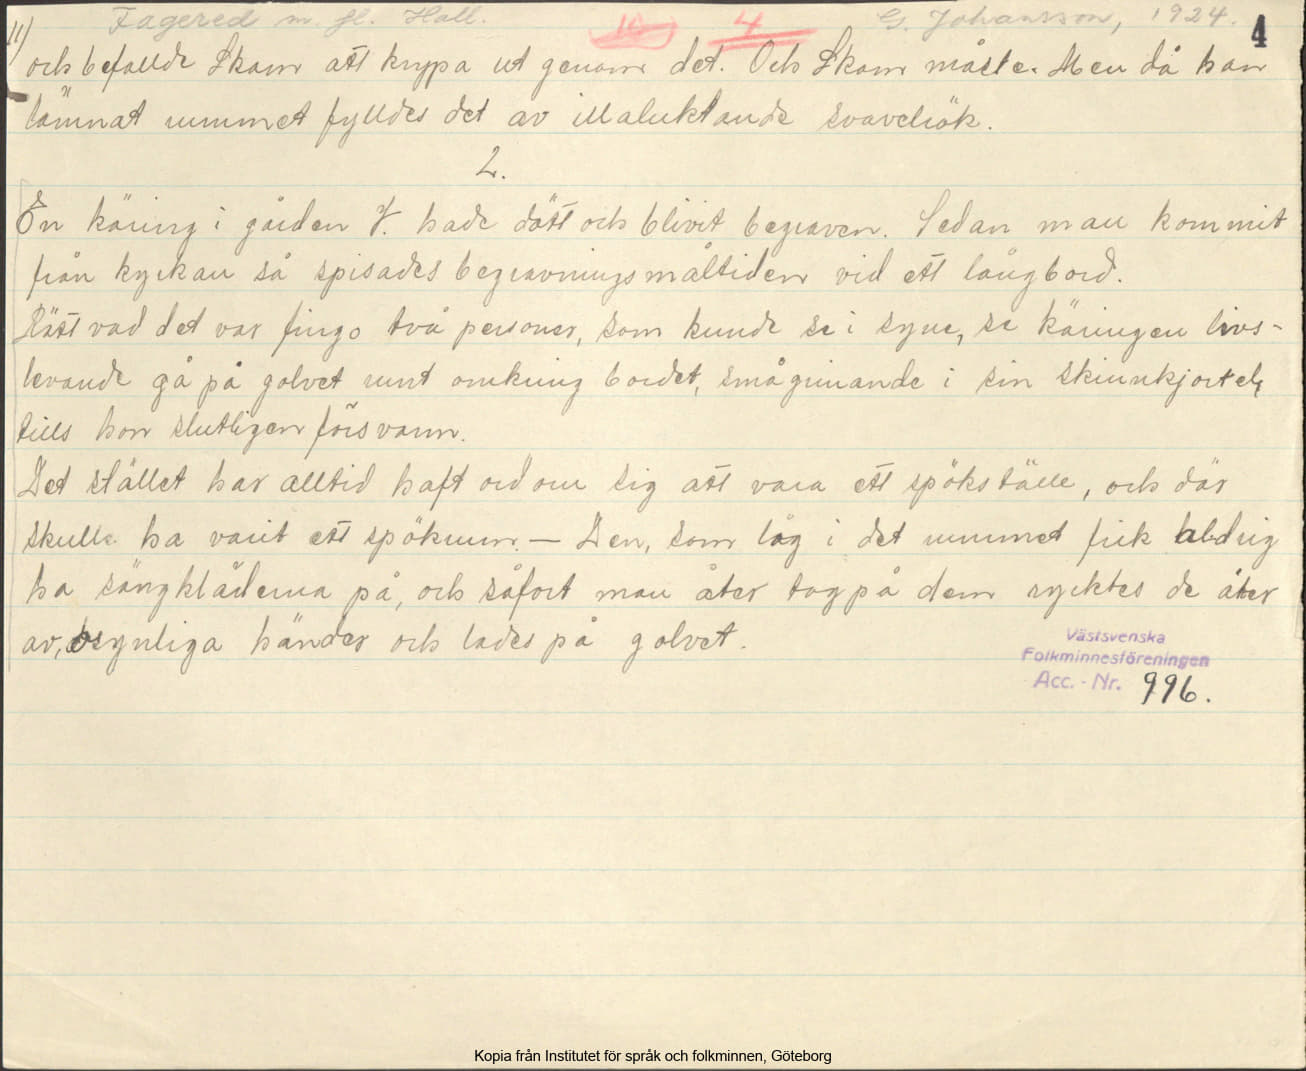 11)
Fagered m. fl. Hall.
4
G. Johansson, 1924.
4
och befallde Skam att krypa ut genom det. Och Skam måste. Men då han
lämnat rummet fylldes det av illaluktande svavelrök.
2.
En käring i gården V. hade dött och blivit begraven. Sedan man kommit
från kyrkan så spisades begravningsmåltiden vid ett långbord.
Rätt vad det var fingo två personer, som kunde se i syne, se käringen livs-
levande gå på golvet runt omkring bordet, smågrinande i sin skinnkjortel,
tills hon slutligen försvann.
Det stället har alltid haft ord om sig att vara ett spökställe, och där
skulle ha varit ett spökrum. — Den, som låg i det rummet fick aldrig
ha sängkläderna på, och såfort man åter tog på dem rycktes de åter
av, osynliga händer och lades på golvet.
Västsvenska
Folkminnesföreningen
Acc. - Nr. 996.
Kopia från Institutet för språk och folkminnen, Göteborg